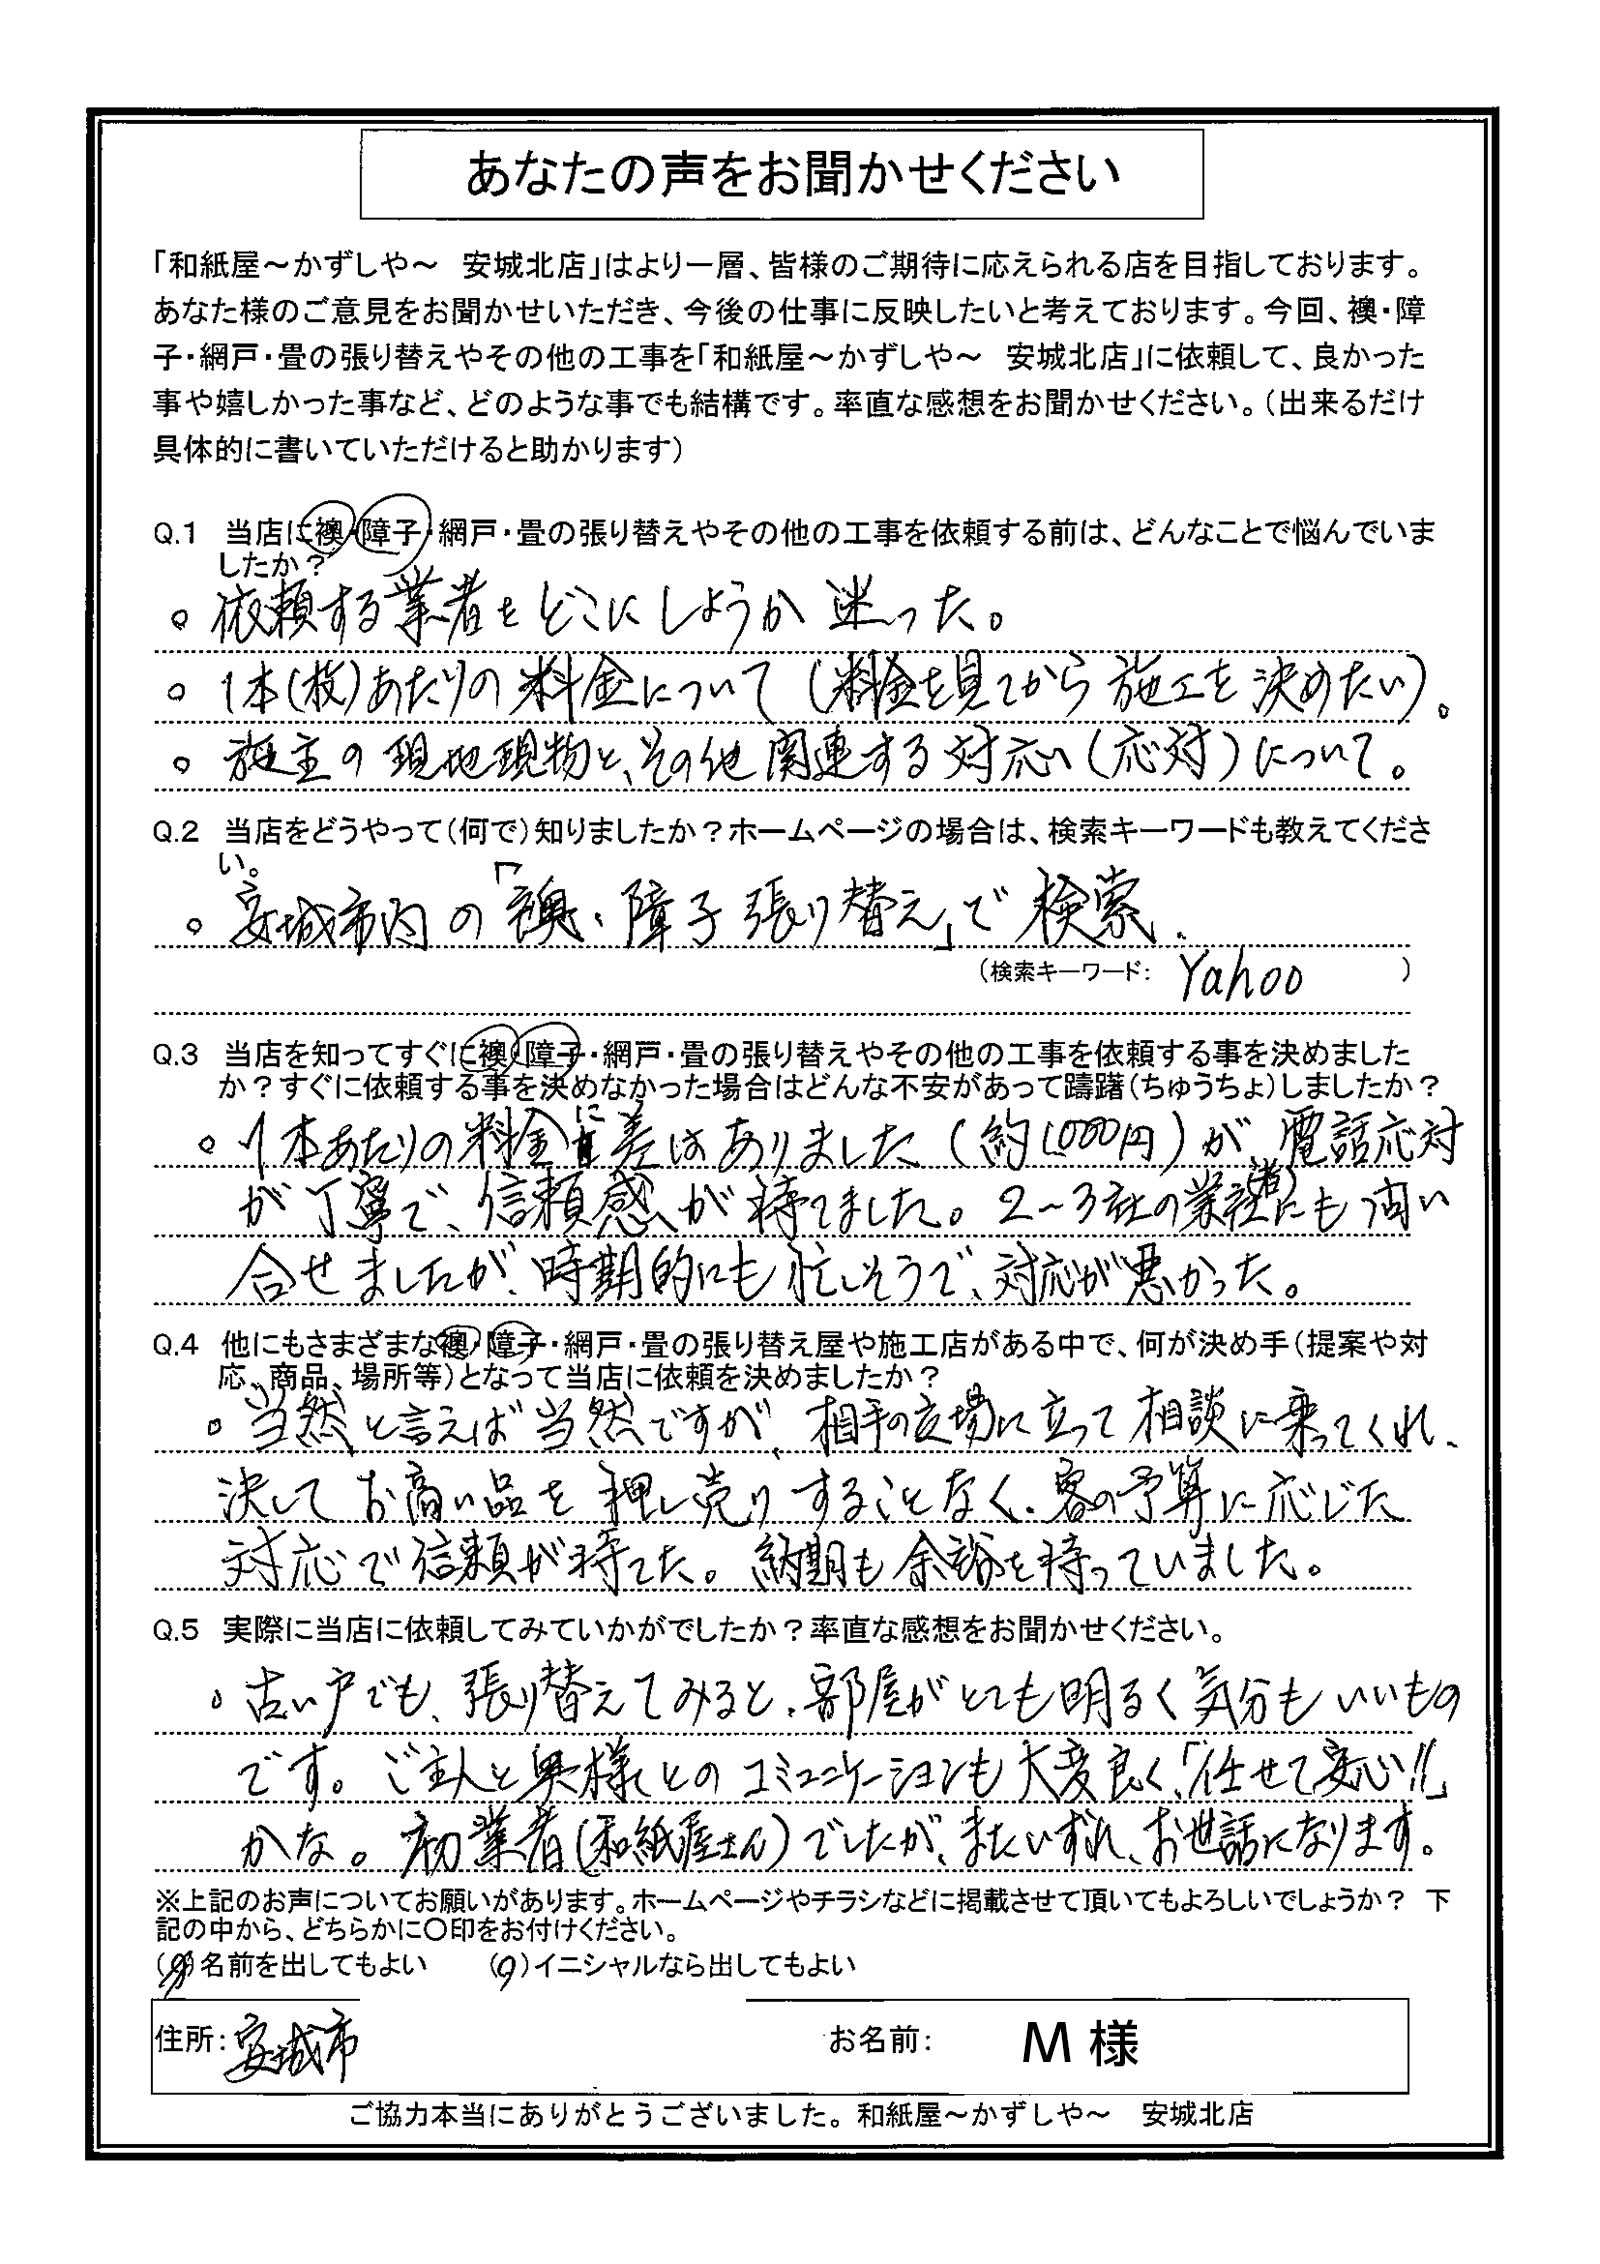 あなたの声をお聞かせください
「和紙屋～かずしや～　安城北店」はより一層、皆様のご期待に応えられる店を目指しております。
あなた様のご意見をお聞かせいただき、今後の仕事に反映したいと考えております。今回、襖・障
子・網戸・畳の張り替えやその他の工事を「和紙屋～かずしや～　安城北店」に依頼して、良かった
事や嬉しかった事など、どのような事でも結構です。率直な感想をお聞かせください。（出来るだけ
具体的に書いていただけると助かります）
Q.1　当店に襖・障子・網戸・畳の張り替えやその他の工事を依頼する前は、どんなことで悩んでいま
したか？
。依頼する業者をどこにしようか迷った。
。1本(枚)あたりの料金について（料金を見てから施工を決めたい）。
。施主の現地現物と、その他関連する対応い（応対）について。
Q.2　当店をどうやって（何で）知りましたか？ホームページの場合は、検索キーワードも教えてくださ
い。
。安城市内の「襖、障子張り替え」で検索.
（検索キーワード：Yahoo　）
Q.3　当店を知ってすぐに襖・障子・網戸・畳の張り替えやその他の工事を依頼する事を決めました
か？すぐに依頼する事を決めなかった場合はどんな不安があって躊躇（ちゅうちょ）しましたか？
。1本あたりの料金に差はありました（約1,000円）が、電話応対
が丁寧で、信頼感が持てました。2～3社の業社(者)にも問い
合せましたが、時期的にも忙しそうで、対応が悪かった。
Q.4　他にもさまざまな襖・障子・網戸・畳の張り替え屋や施工店がある中で、何が決め手（提案や対
応、商品、場所等）となって当店に依頼を決めましたか？
。当然と言えば当然ですが、相手の立場に立って相談に乗ってくれ、
決してお高い品を押し売りすることなく、客の予算に応じた
対応で信頼が持てた。納期も余裕を持っていました。
Q.5　実際に当店に依頼してみていかがでしたか？率直な感想をお聞かせください。
。古い戸でも、張り替えてみると、部屋がとても明るく気分もいいもの
です。ご主人と奥様とのコミュニケーションも大変良く、「任せて安心!!」
かな。初業者（和紙屋さん）でしたが、またいずれ、お世話になります。
※上記のお声についてお願いがあります。ホームページやチラシなどに掲載させて頂いてもよろしいでしょうか？　下
記の中から、どちらかに〇印をお付けください。
（　）名前を出してもよい　　（○）イニシャルなら出してもよい
住所：安城市　お名前：　M 様
ご協力本当にありがとうございました。和紙屋～かずしや～　安城北店